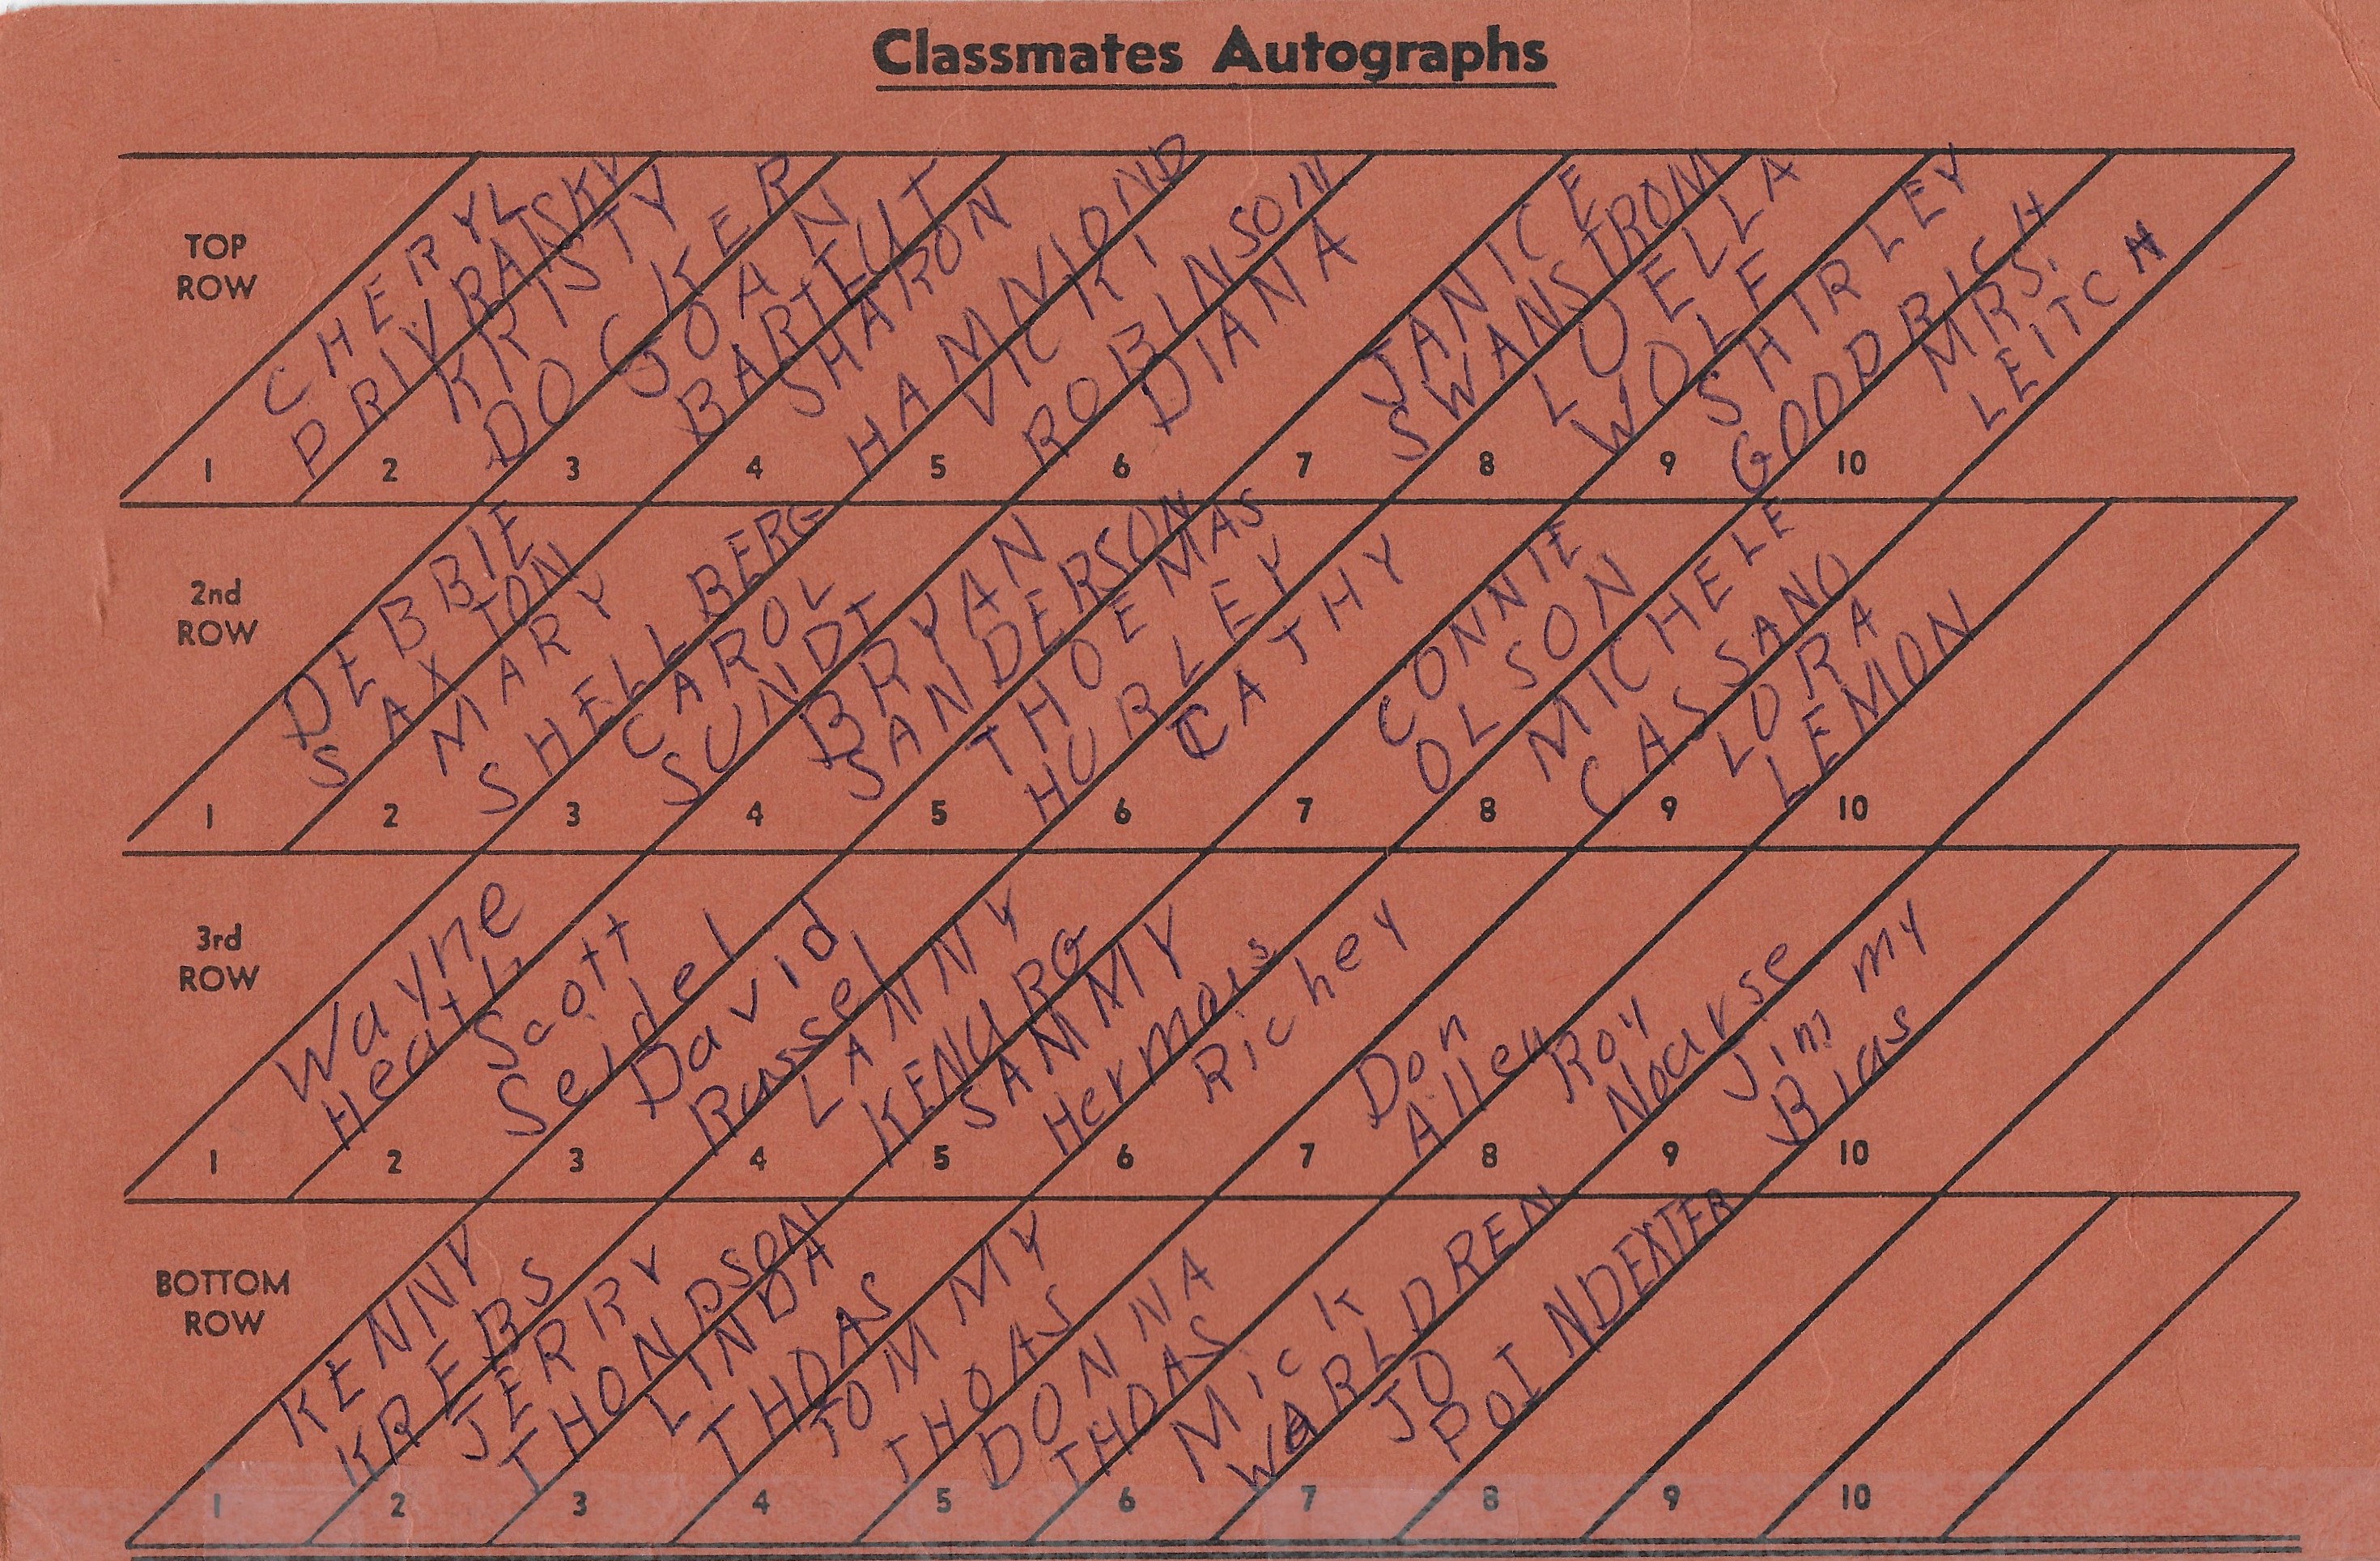 Classmates Autographs
TOP
ROW
CHERYL
PRIVRATSKY
KRISTY
DOCKER
JOAN
BARTELIT
SHARON
HAMMOND
VICKI
ROBINSON
DIANA
JANICE
SWANSTROM
LOELLA
WOLF
SHIRLEY
GOODRICH
MRS.
LEITCH
1 2 3 4 5 6 7 8 9 10
2nd
ROW
DEBBIE
SAXTON
MARY
SHELLBERG
CAROL
SUNDT
BRYAN
SANDERSON
THOEMAS
HURLEY
CATHY
CONNIE
OLSON
MICHELE
CASSANO
LORA
LEMON
1 2 3 4 5 6 7 8 9 10
3rd
ROW
Wayne
Heath
Scott
Seidel
David
Russel
LANNY
SAMMY
Hermais
Richey
Don
Allen
Roy
Nourse
Jim my
Bias
1 2 3 4 5 6 7 8 9 10
BOTTOM
ROW
KENNY
KREBS
JERRY
THONPSON
LINDA
THOAS
TOMMY
THOAS
DONNA
THOAS
Mick
WARLDREN
JO
POINDEXTER
1 2 3 4 5 6 7 8 9 10